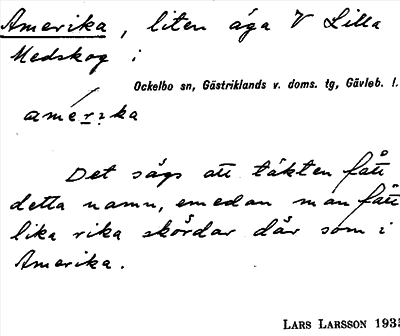 Amerika, liten äga V Lilla
Medskog i
Ockelbo sn, Gästriklands v. doms. tg, Gävleb. l.
amérika
Det sägs att täkten fått
detta namn, emedan man fått
lika rika skördar där som i
Amerika.
LARS LARSSON 193